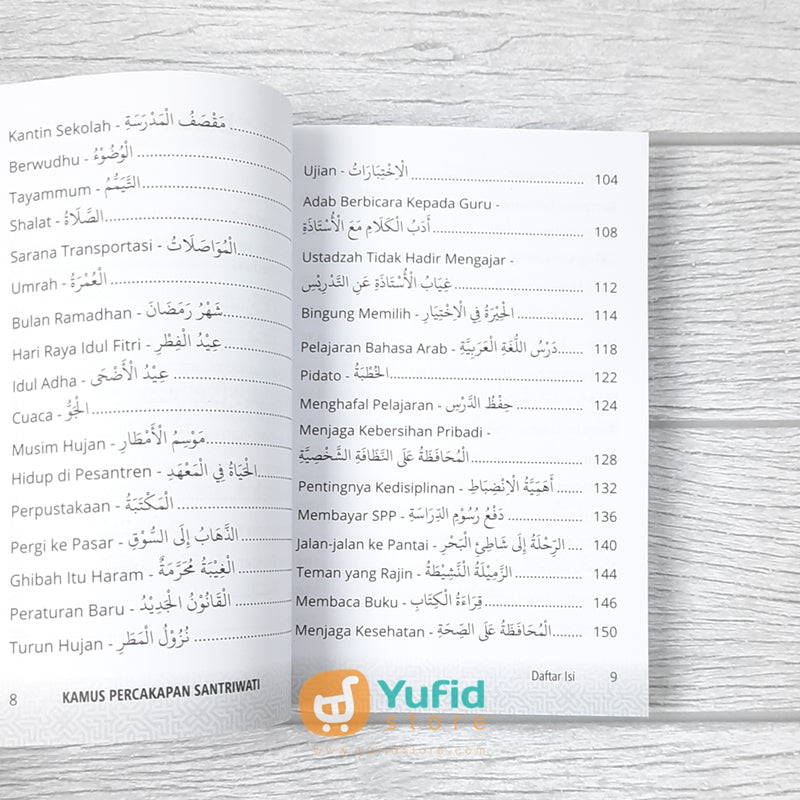 Kantin Sekolah - مَقْصَفُ الْمَدْرَسَةِ
Berwudhu - الْوُضُوْءُ
Tayammum - التَّيَمُّمُ
Shalat - الصَّلَاةُ
Sarana Transportasi - الْمُوَاصَلَاتُ
Umrah - الْعُمْرَةُ
Bulan Ramadhan - شَهْرُ رَمَضَانَ
Hari Raya Idul Fitri - عِيْدُ الْفِطْرِ
Idul Adha - عِيْدُ الْأَضْحَى
Cuaca - الْجَوُّ
Musim Hujan - مَوْسِمُ الْأَمْطَارِ
Hidup di Pesantren - الْحَيَاةُ فِي الْمَعْهَدِ
Perpustakaan - الْمَكْتَبَةُ
Pergi ke Pasar - الذَّهَابُ إِلَى السُّوْقِ
Ghibah Itu Haram - الْغِيْبَةُ مُحَرَّمَةٌ
Peraturan Baru - الْقَانُوْنُ الْجَدِيْدُ
Turun Hujan - نُزُوْلُ الْمَطَرِ
8 KAMUS PERCAKAPAN SANTRIWATI
Ujian - الْاِخْتِبَارَاتُ 104
Adab Berbicara Kepada Guru -
أَدَبُ الْكَلَامِ مَعَ الْأُسْتَاذَةِ 108
Ustadzah Tidak Hadir Mengajar -
غِيَابُ الْأُسْتَاذَةِ عَنِ التَّدْرِيْسِ 112
Bingung Memilih - الْحِيْرَةُ فِي الْاِخْتِيَارِ 114
Pelajaran Bahasa Arab - دَرْسُ اللُّغَةِ الْعَرَبِيَّةِ 118
Pidato - الْخُطْبَةُ 122
Menghafal Pelajaran - حِفْظُ الدَّرْسِ 124
Menjaga Kebersihan Pribadi -
الْمُحَافَظَةُ عَلَى النَّظَافَةِ الشَّخْصِيَّةِ 128
Pentingnya Kedisiplinan - أَهَمِّيَّةُ الْاِنْضِبَاطِ 132
Membayar SPP - دَفْعُ رُسُوْمِ الدِّرَاسَةِ 136
Jalan-jalan ke Pantai - الرِّحْلَةُ إِلَى شَاطِئِ الْبَحْرِ 140
Teman yang Rajin - الزَّمِيْلَةُ النَّشِيْطَةُ 144
Membaca Buku - قِرَاءَةُ الْكِتَابِ 146
Menjaga Kesehatan - الْمُحَافَظَةُ عَلَى الصِّحَةِ 150
Daftar Isi 9
Yufid
store
www.yufidstore.com